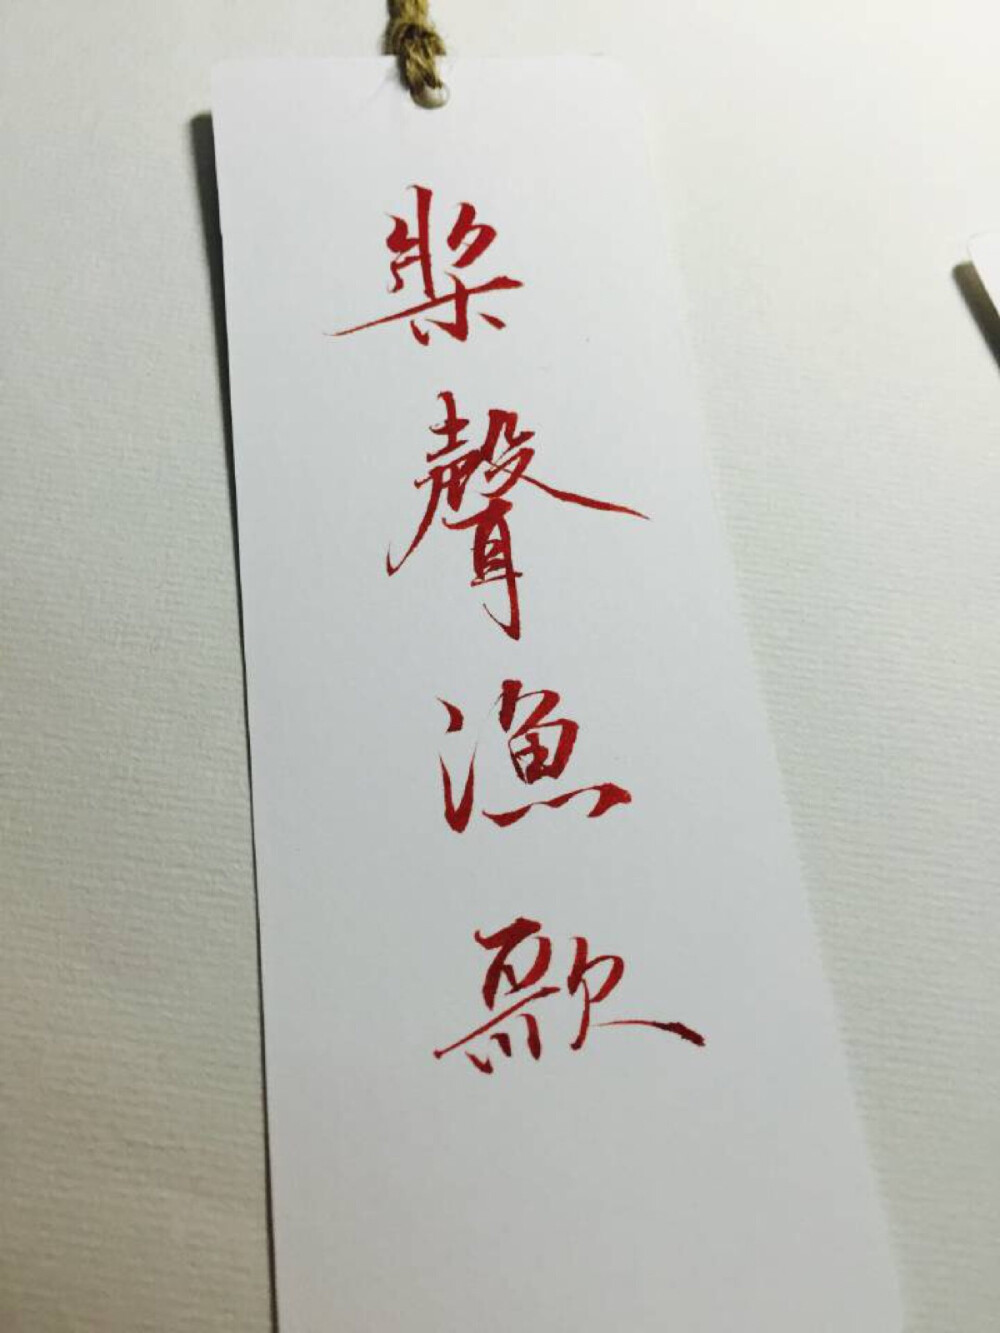 槳聲漁歌